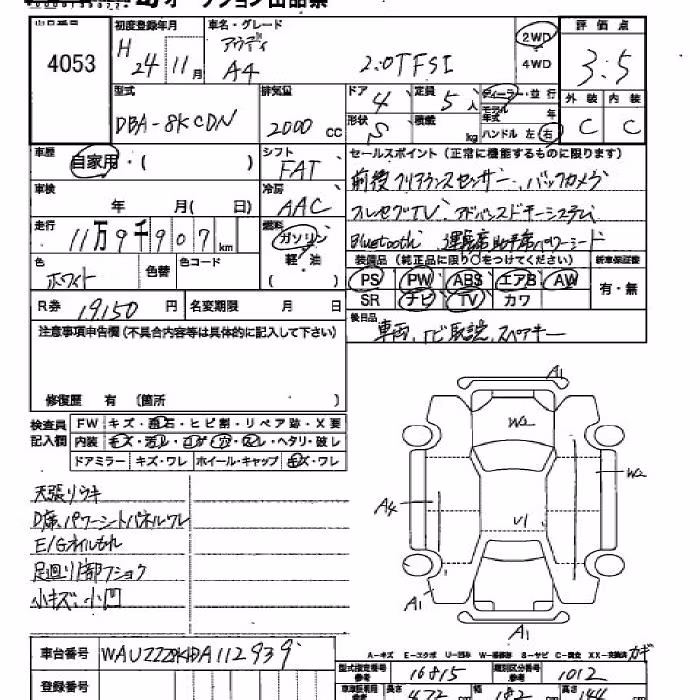 オークション出品票
出品番号 初度登録年月 車名・グレード 評価点
4053 H 24年 11月 アウディ A4 2.0TFSI 2WD・4WD 3.5
型式 排気量 ドア 4 定員 5人 ディーラー・並行 外装 内装
DBA-8KCDN 2000cc 形状 S 積載 kg モデル年式 年 ハンドル 左 右 C C
車歴 自家用・( ) シフト FAT セールスポイント(正常に機能するものに限ります)
車検 年 月( 日) 冷房 AAC 前後クリアランスセンサー、バックカメラ
走行 11万9千907km 燃料 ガソリン・軽油 ( ) フルセグTV、アドバンスドキーシステム
Bluetooth 運転席助手席パワーシート
色 ホワイト 色替 色コード 装備品(純正品に限り○をつけてください) 新車保証書
PS PW ABS エアB AW 有・無
R券 19,150円 名変期限 月 日 SR ナビ TV カワ
注意事項申告欄(不具合内容等は具体的に記入して下さい) 後日品
車両、ナビ取説、スペアキー
修復歴 有 〔箇所
検査員記入欄 FW キズ・飛石・ヒビ割・リペア跡・X要
内装 キズ・汚レ・コゲ・穴・スレ・ヘタリ・破レ
ドアミラー キズ・ワレ ホイール・キャップ キズ・ワレ
天張リウキ
D席パワーシートパネルワレ
E/Gオイルもれ
足廻リ下部フショク
小キズ、小凹
A1
W2
W2
A4
U1
A1
A1
車台番号 WAUZZZ8K4DA112939
A-キズ E-エクボ U-凹み W-補修跡 S-サビ C-腐食 XX-交換済 カギ
登録番号 型式指定番号 16815 類別区分番号 1012
長さ 472 cm 幅 182 cm 高さ 144